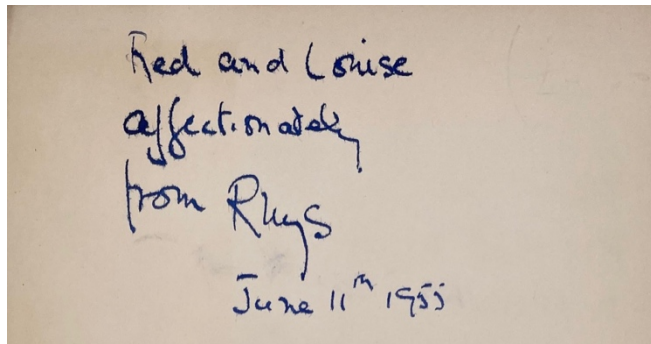 Fred and Louise
affectionately
from Rhys
June 11th 1955